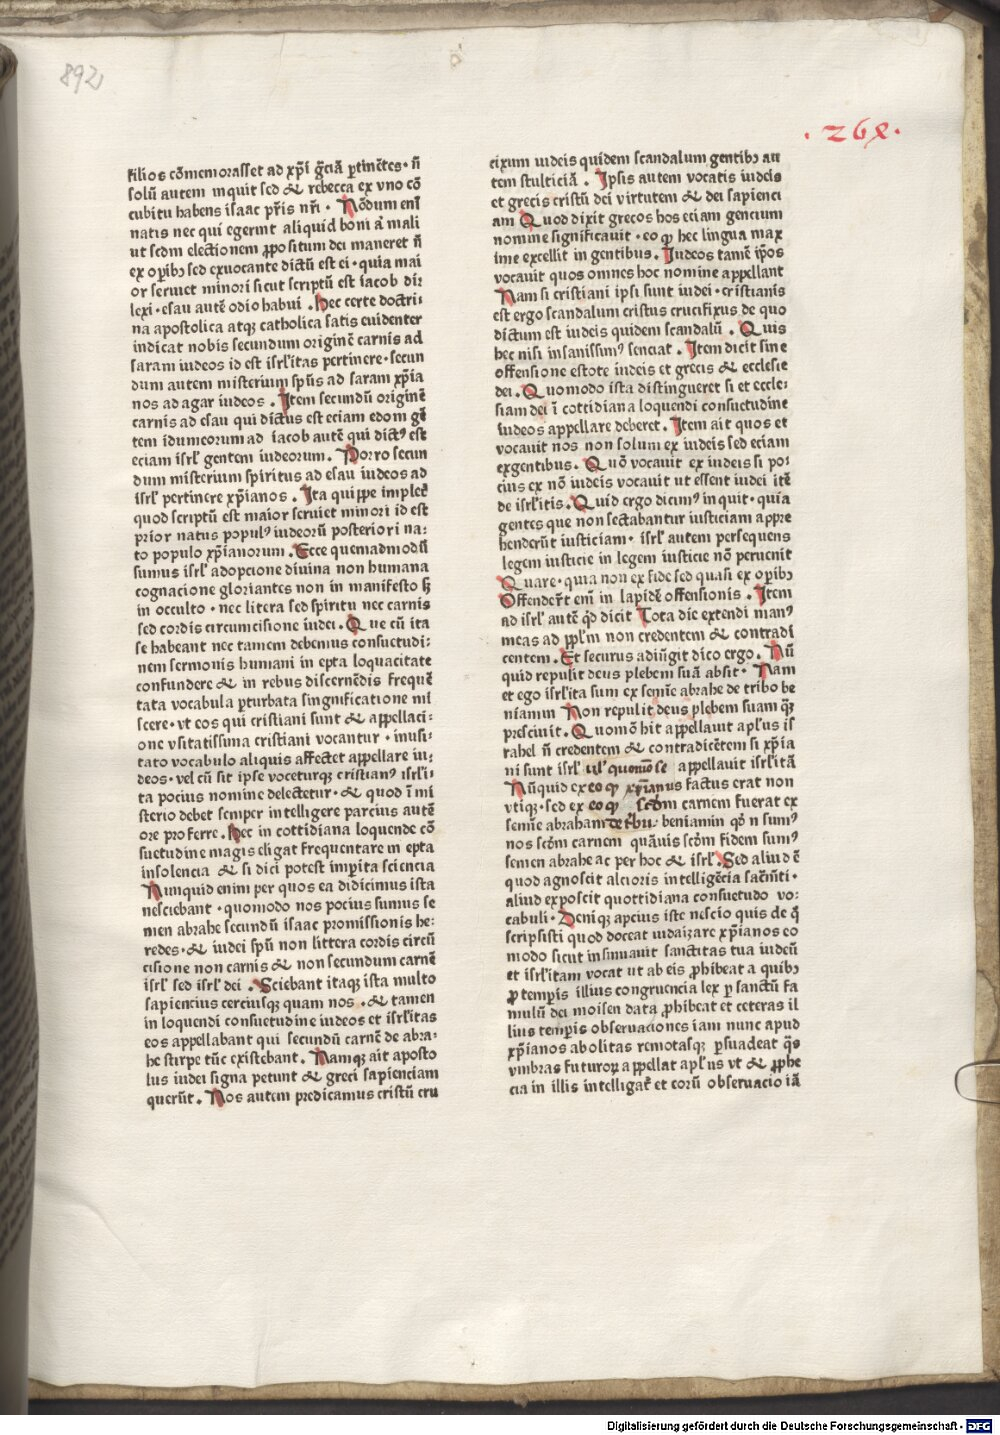 892
.268.
filios cōmemorasset ad xp̄i gr̄ciā ꝑtinētes · n̄
solū autem inquit sed & rebecca ex vno cō
cubitu habens isaac pr̄is nr̄i · Nōdum enī
natis nec qui egerint aliquid boni aͭ mali
ut scd̄m electionem ꝓpositum dei maneret n̄
ex oꝑibꝫ sed exuocante dictū est ei · quia mai
or seruiet minori sicut scriptū est iacob di⸗
lexi · esau autē odio habui . Hec certe doctri⸗
na apostolica atqꝫ catholica satis euidenter
indicat nobis secundum originē carnis ad
saram iudeos id est isrl̄itas pertinere · secun
dum autem misterium spūs ad saram xp̄ia
nos ad agar iudeos . Item secundū originē
carnis ad esau qui dictus est eciam edom gē
tem idumeorum ad iacob autē qui dictꝰ est
eciam isrl̄ gentem iudeorum . Porro secun
dum misterium spiritus ad esau iudeos ad
isrl̄ pertinere xp̄ianos . Ita quippe impletͬ
quod scriptū est maior seruiet minori id est
prior natus populꝰ iudeorū posteriori na⸗
to populo xp̄ianorum . Ecce quemadmodū
sumus isrl̄ adopcione diuina non humana
cognacione gloriantes non in manifesto sꝫ
in occulto · nec litera sed spiritu nec carnis
sed cordis circumcisione iudei . Que cū ita
se habeant nec tamen debemus consuetudi⸗
nem sermonis humani in epta loquacitate
confundere & in rebus discernēdis frequē
tata vocabula ꝑturbata singnificatione mi
scere · vt eos qui cristiani sunt & appellaci⸗
one vsitatissima cristiani vocantur · inusi⸗
tato vocabulo aliquis affectet appellare iu⸗
deos · vel cū sit ipse voceturqꝫ cristianꝰ isrl̄i⸗
ta pocius nomine delectetur · & quod ī mi
sterio debet semper intelligere parcius autē
ore proferre . Hec in cottidiana loquende cō
suetudine magis eligat frequentare in epta
insolencia & si dici potest imꝑita sciencia
Nunquid enim per quos ea didicimus ista
nesciebant · quomodo nos pocius sumus se
men abrahe secundū isaac promissionis he⸗
redes · & iudei spū non littera cordis circū
cisione non carnis & non secundum carnē
isrl̄ sed isrl̄ dei . Sciebant itaqꝫ ista multo
sapiencius cerciusqꝫ quam nos · & tamen
in loquendi consuetudine iudeos et isrl̄itas
eos appellabant qui secundū carnē de abra⸗
he stirpe tūc existebant . Namqꝫ ait aposto
lus iudei signa petunt & greci sapienciam
querūt . Nos autem predicamus cristū cru
cixum iudeis quidem scandalum gentibꝫ au
tem stulticiā . Ipsis autem vocatis iudeis
et grecis cristū dei virtutem & dei sapienci
am Quod dixit grecos hos eciam gencium
nomine significauit · eo ꝙ hec lingua max
ime excellit in gentibus . Iudeos tamē ip̄os
vocauit quos omnes hoc nomine appellant
Nam si cristiani ipsi sunt iudei · cristianis
est ergo scandalum cristus crucifixus de quo
dictum est iudeis quidem scandalū . Quis
hec nisi insanissimꝰ senciat . Item dicit sine
offensione estote iudeis et grecis & ecclesie
dei . Quomodo ista distingueret si et eccle⸗
siam dei ī cottidiana loquendi consuetudine
iudeos appellare deberet . Item ait quos et
vocauit nos non solum ex iudeis sed eciam
exgentibus . Quō vocauit ex iudeis si po⸗
cius ex nō iudeis vocauit ut essent iudei itē
de isrl̄itis . Quid ergo dicimꝰ inquit · quia
gentes que non sectabantur iusticiam appre
henderūt iusticiam · isrl̄ autem persequens
legem iusticie in legem iusticie nō peruenit
Quare · quia non ex fide sed quasi ex oꝑibꝫ
Offenderūt enī in lapidē offensionis . Item
ad isrl̄ autē qͦd dicit Tota die extendi manꝰ
meas ad ppl̄m non credentem & contradi
centem . Et securus adiūgit dico ergo . Nū
quid repulit deus plebem suā absit · Nam
et ego isrl̄ita sum ex semīe abrahe de tribo be
niamin Non repulit deus plebem suam qͣꝫ
presciuit . Quomō hit appellauit apl̄us is
rahel n̄ credentem & contradicētem si xp̄ia
ni sunt isrl̄ vlˀ quomo se appellauit isrl̄itā
Nūquid ex eo ꝙ xp̄ianus factus erat non
vtiqꝫ · sed ex eo ꝙ scd̄m carnem fuerat ex
semīe abraham de tͥbu beniamin qͦ n sumꝰ
nos scd̄m carnem quāuis scd̄m fidem sumꝰ
semen abrahe ac per hoc & isrl̄ . Sed aliud ē
quod agnoscit alcioris intelligēcia sacm̄ti ·
aliud exposcit quottidiana consuetudo vo⸗
cabuli · Deniqꝫ apcius iste nescio quis de qͦ
scripsisti quod doceat iudaizare xp̄ianos eo
modo sicut insinuauit sanctitas tua iudeū
et isrl̄itam vocat ut ab eis ꝓhibeat a quibꝫ
ꝓ temꝑis illius congruencia lex ꝑ sanctū fa
mulū dei moisen data ꝓhibeat et ceteras il
lius temꝑis obseruaciones iam nunc apud
xp̄ianos abolitas remotasqꝫ ꝑsuadeat qͣs
vmbras futuroꝝ appellat apl̄us vt & ꝓphe
cia in illis intelligatͬ et eorū obseruacio iā
Digitalisierung gefördert durch die Deutsche Forschungsgemeinschaft - DFG